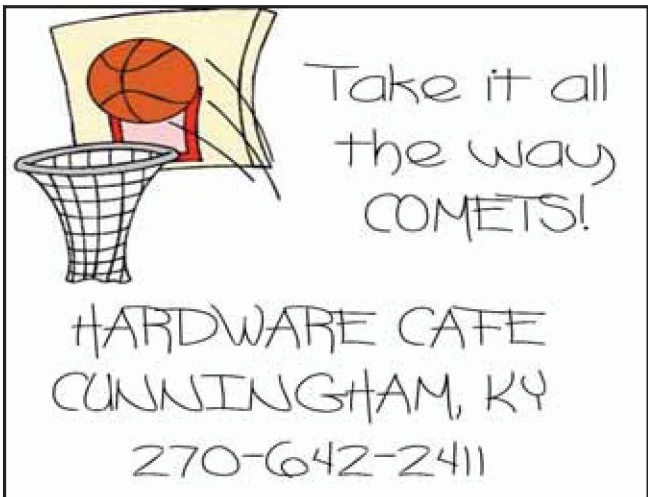 Take it all
the way
COMETS!
HARDWARE CAFE
CUNNINGHAM, KY
270-642-2411